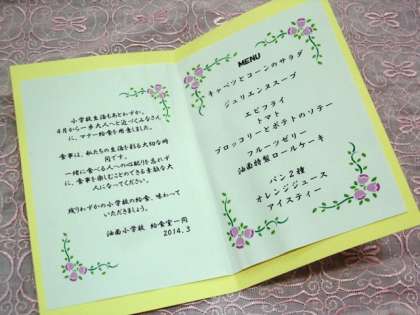 小学校生活もあとわずか。
4月から一歩大人へと近づくみなさん
に、マナー給食を用意しました。
食事は、私たちの生活を彩る大切な時
間です。
一緒に食べる人への心配りを忘れず
に、食事を楽しむことのできる素敵な大
人になってください。
残りわずかの小学校の給食、味わって
いただきましょう。
油面小学校 給食室一同
2014.3
MENU
キャベツとコーンのサラダ
ジュリエンヌスープ
エビフライ
トマト
ブロッコリーとポテトのソテー
フルーツゼリー
油面特製ロールケーキ
パン2種
オレンジジュース
アイスティー